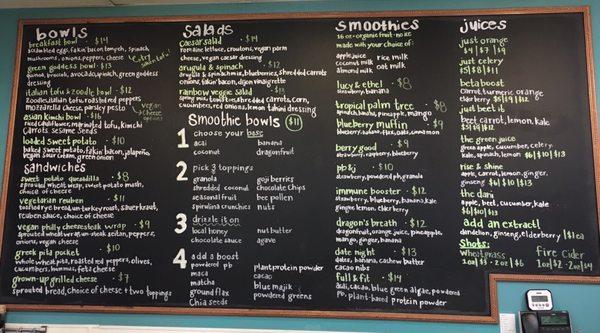 bowls
breakfast bowl · $14
scrambled eggs, fakin' bacon tmpch, spinach,
mushrooms, onions, peppers, cheese
green goddess bowl · $13
quinoa, broccoli, avocado, spinach, green goddess
dressing
italian tofu & zoodle bowl · $12
zoodles, italian tofu, roasted peppers
mozzarella cheese, parsley pesto
vegan
cheese
option
asian kimchi bowl · $16
riced cauliflower, marinated tofu, kimchi
carrots, sesame seeds
loaded sweet potato · $10
sweet potato, fakin' bacon, jalapeño,
vegan sour cream, green onion
sandwiches
sweet potato quesadilla · $8
sprouted wheat wrap, sweet potato mash,
choice of cheese
vegetarian reuben · $11
sauerkraut,
reuben sauce, choice of cheese
vegan philly cheesesteak wrap · $9
sprouted wheat wrap, seitan, peppers,
onions, vegan cheese
greek pita pocket · $10
whole wheat pita, roasted red peppers, olives,
cucumbers, hummus, feta cheese
grown-up grilled cheese · $7
sprouted bread, choice of cheese + two toppings
salads
caesar salad · $14
romaine lettuce, croutons, vegan parm
cheese, vegan caesar dressing
arugula & spinach · $12
arugula & spinach mix, blueberries, shredded carrots
onions, fakin' bacon, dijon vinaigrette
rainbow veggie salad · $13
spring mix, tomatoes, shredded carrots, corn,
cucumbers, red onions, lemon tahini dressing
smoothie bowls $11
1 choose your base
acai banana
coconut dragonfruit
2 pick 3 toppings
granola goji berries
shredded coconut chocolate chips
seasonal fruit bee pollen
spirulina crunchies nuts
3 drizzle it on
local honey nut butter
chocolate sauce agave
4 add a boost
powdered pb plant protein powder
maca cacao
matcha blue majik
ground flax powdered greens
chia seeds
smoothies
16 oz · organic fruit · no ice
made with your choice of:
apple juice rice milk
coconut milk oat milk
almond milk
lucy & ethel · $8
strawberry, banana
tropical palm tree · $8
pineapple, mango
blueberry muffin · $9
blueberry, banana, flax, oats, cinnamon
berry good · $9
strawberry, raspberry, blueberry
pb & j · $10
strawberry, powdered pb, granola
immune booster · $12
strawberry, blueberry, banana, kale,
ginger, lemon, elderberry
dragon's breath · $12
dragonfruit, orange juice, pineapple,
mango, ginger, banana
date night · $13
dates, banana, cashew butter
cacao nibs
full & fit · $14
acai, cacao, blue green algae, powdered
pb, plant-based protein powder
juices
just orange
$4 | $7 | $9
just celery
$5 | $8 | $11
beta boost
carrot, turmeric, orange
elderberry $5 | $9 | $12
just beet it
beet, carrot, lemon, kale
$5 | $9 | $12
the green juice
green apple, cucumber, celery
kale, spinach, lemon $6 | $10 | $13
rise & shine
apple, carrot, lemon, ginger,
ginseng $6 | $10 | $13
the dani
apple, beet, cucumber, kale
$6 | $10 | $13
add an extract!
dandelion, ginseng, elderberry | $1 ea
shots:
wheatgrass fire cider
1oz | $3 · 2oz | $6 1oz | $2 · 2oz | $4